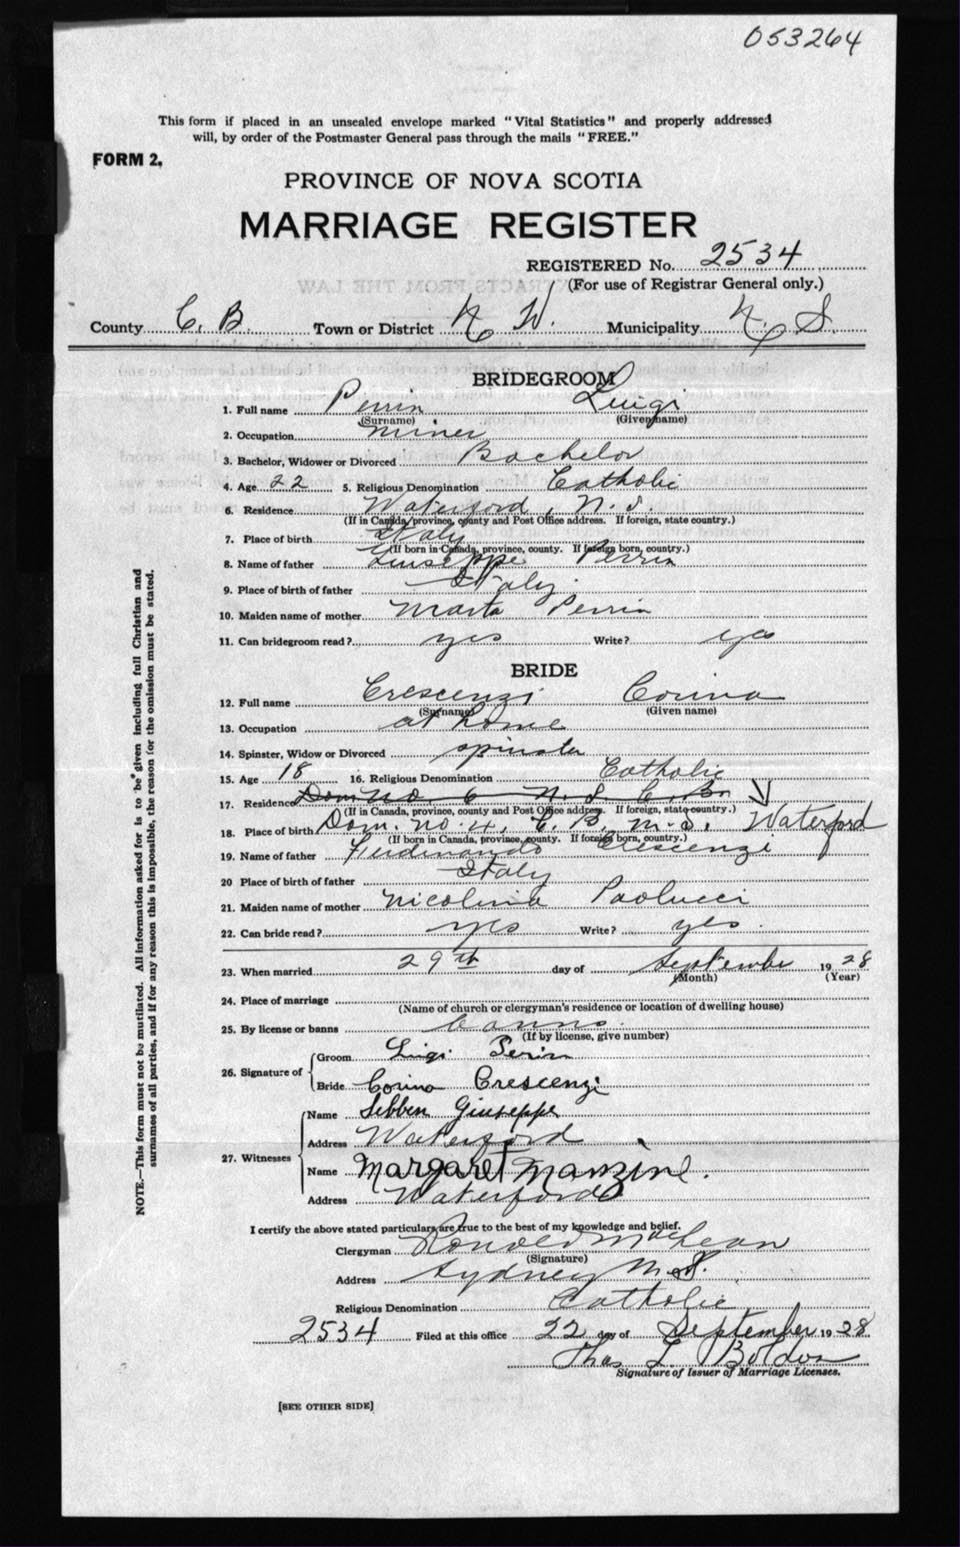 053264
This form if placed in an unsealed envelope marked "Vital Statistics" and properly addressed
will, by order of the Postmaster General pass through the mails "FREE."
FORM 2.
PROVINCE OF NOVA SCOTIA
MARRIAGE REGISTER
REGISTERED No. 2534
(For use of Registrar General only.)
County C. B. Town or District N W. Municipality N. S.
BRIDEGROOM
1. Full name Perrin Luigi
(Surname) (Given name)
2. Occupation miner
3. Bachelor, Widower or Divorced Bachelor
4. Age 22 5. Religious Denomination Catholic
6. Residence Waterford, N. S.
(If in Canada, province, county and Post Office address. If foreign, state country.)
7. Place of birth Italy
(If born in Canada, province, county. If foreign born, country.)
8. Name of father Giuseppe Perrin
9. Place of birth of father Italy
10. Maiden name of mother Marta Perrin
11. Can bridegroom read? yes Write? yes
BRIDE
12. Full name Crescenzi Corina
(Surname) (Given name)
13. Occupation at home
14. Spinster, Widow or Divorced spinster
15. Age 18 16. Religious Denomination Catholic
17. Residence Dom No. 6 N. S C. B
(If in Canada, province, county and Post Office address. If foreign, state country.)
18. Place of birth Dom. No. 4, C. B, N. S. Waterford
(If born in Canada, province, county. If foreign born, country.)
19. Name of father Ferdinando Crescenzi
20 Place of birth of father Italy
21. Maiden name of mother Nicolina Paolucci
22. Can bride read? yes Write? yes
23. When married 29th day of September 1928
(Month) (Year)
24. Place of marriage
(Name of church or clergyman's residence or location of dwelling house)
25. By license or banns banns.
(If by license, give number)
26. Signature of
Groom Luigi Perin
Bride Corina Crescenzi
27. Witnesses
Name Sebben Giuseppe
Address Waterford
Name Margaret Manzine.
Address Waterford
I certify the above stated particulars are true to the best of my knowledge and belief.
Clergyman Ronald McLean
(Signature)
Address Sydney M. S.
Religious Denomination Catholic
2534 Filed at this office 22 day of September 1928
Thos L Boldon
Signature of Issuer of Marriage Licenses.
[SEE OTHER SIDE]
NOTE.—This form must not be mutilated. All information asked for is to be given including full Christian and
surnames of all parties, and if for any reason this is impossible, the reason for the omission must be stated.